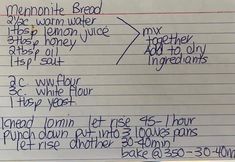 Mennonite Bread
2½c warm water
1 tbsp lemon juice
3 tbsp honey
2 tbsp oil
1 tsp salt
mix
together
Add to dry
Ingredients
2 c ww.flour
3c. white flour
1 tbsp yeast
Knead 10min let rise 45-1 hour
punch down put into 3 loaves pans
let rise another 30-40min
bake @350-30-40m